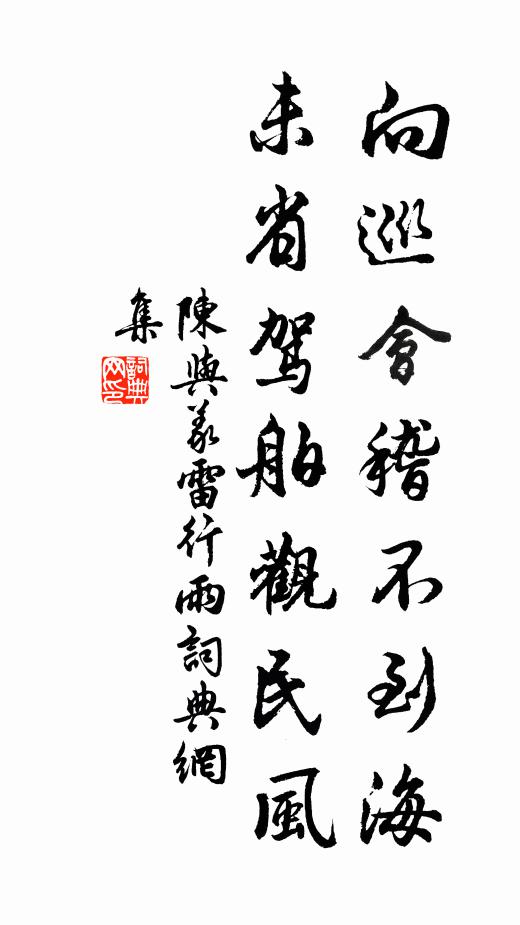 向巡會稽不到海
未省駕舶觀民風
陳與義雷行雨詞典網
集
詞典
网印